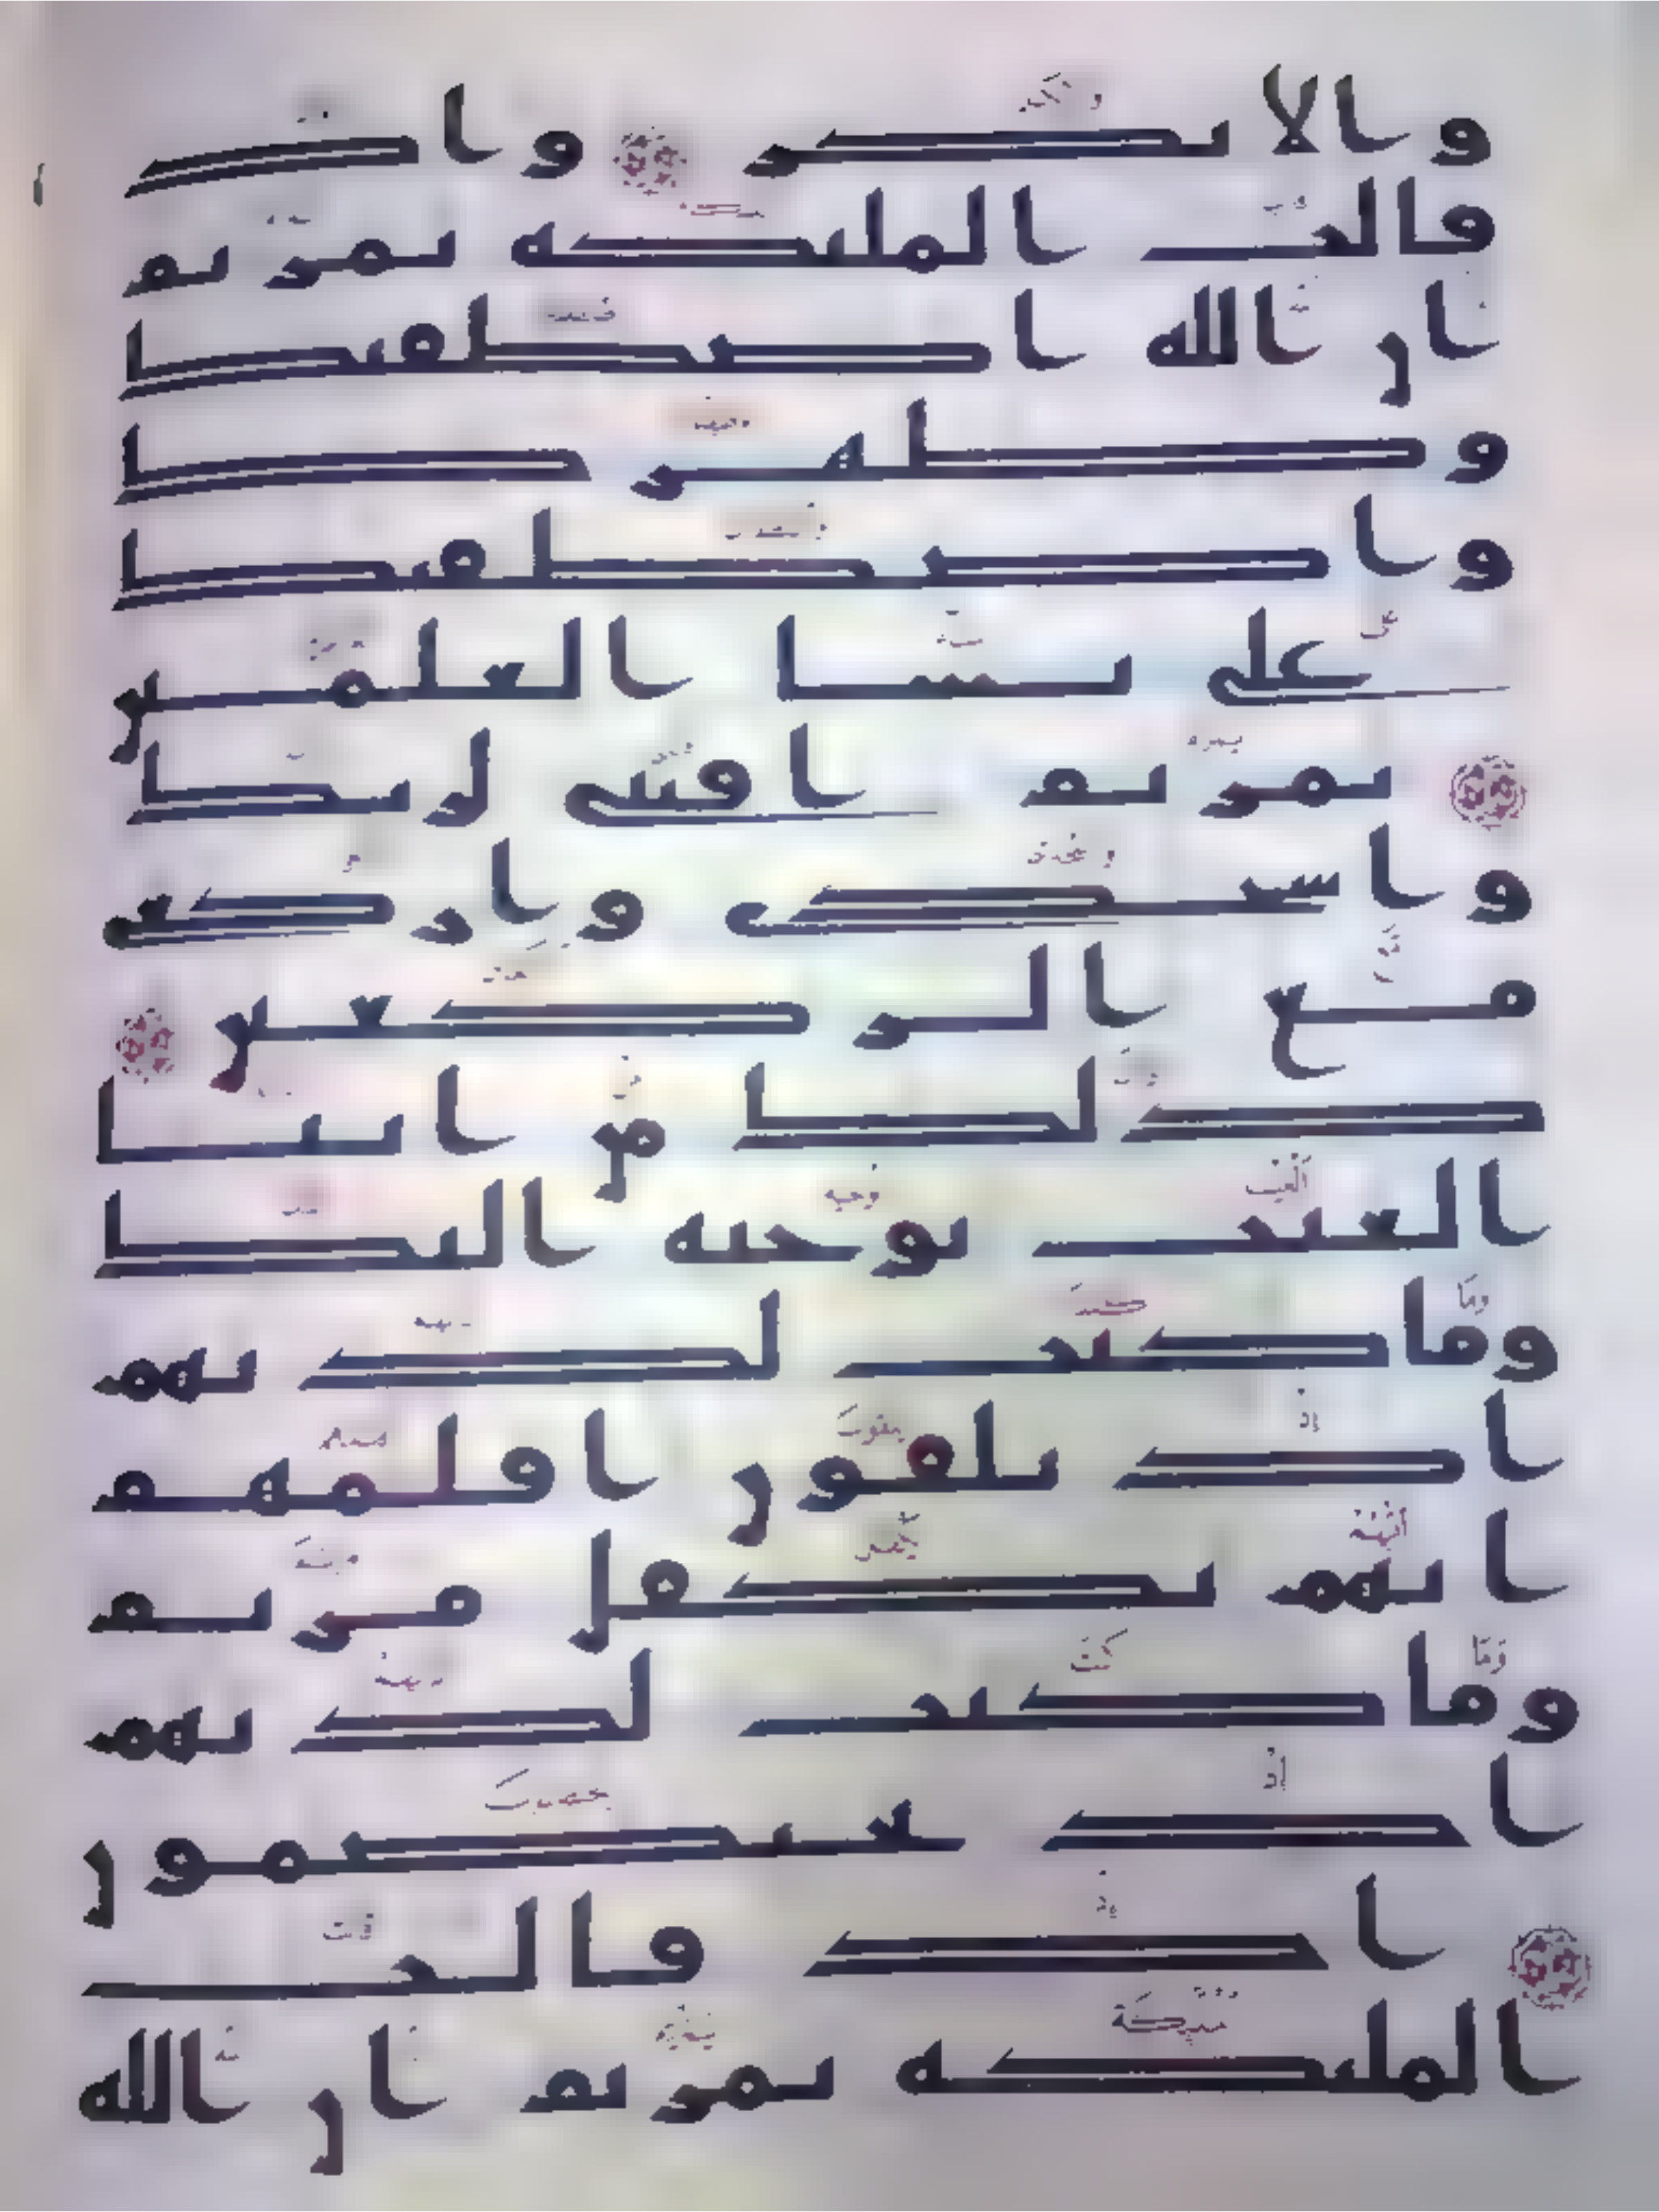 والابكر واذ
قالت الملئكة يمريم
ان الله اصطفيك
وطهرك
واصطفيك
على نسا العلمين
يمريم اقنتى لربك
واسجدى واركعى
مع الركعين
ذلك من انبا
الغيب نوحيه اليك
وما كنت لديهم
اذ يلقون اقلمهم
ايهم يكفل مريم
وما كنت لديهم
اذ يختصمون
اذ قالت
الملئكة يمريم ان الله